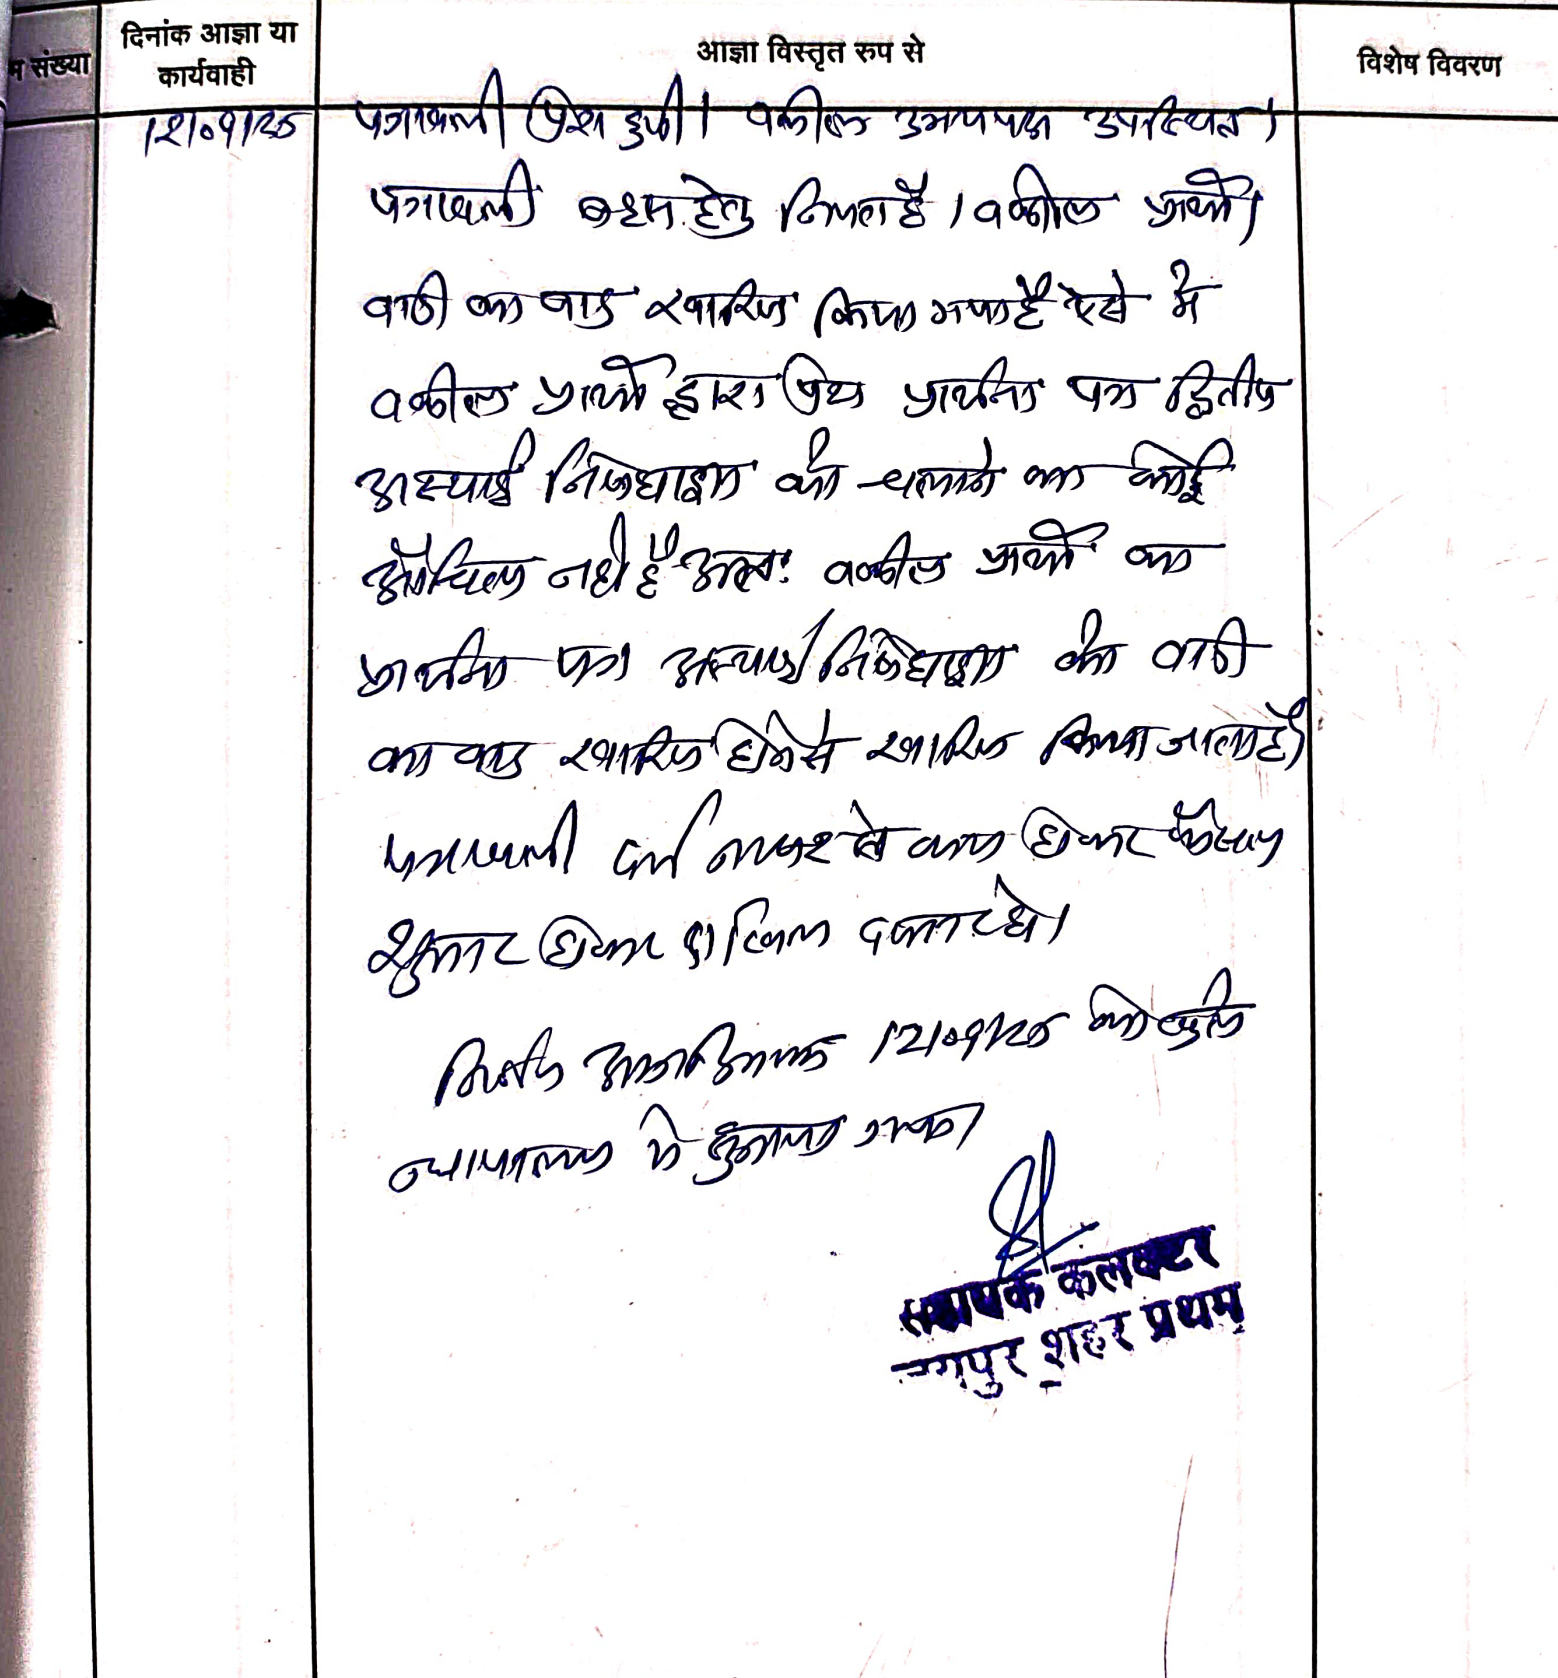 म संख्या
दिनांक आज्ञा या
कार्यवाही
आज्ञा विस्तृत रुप से
विशेष विवरण
पत्रावली पेश हुयी। वकील उभयपक्ष उपस्थित।
पत्रावली बहस हेतु नियत है। वकील प्रार्थी
वादी का वाद खारिज किया गया है ऐसे में
वकील प्रार्थी द्वारा पेश प्रार्थना पत्र द्वितीय
अस्थाई निषेधाज्ञा को चलाने का कोई
औचित्य नही है अतः वकील प्रार्थी का
प्रार्थना पत्र अस्थाई निषेधाज्ञा को वादी
का वाद खारिज होने से खारिज किया जाता है।
पत्रावली नम्बर से कम होकर फैसल
शुमार होकर दाखिल दफ्तर हो।
निर्णय आज दिनांक को खुले
न्यायालय मे सुनाया गया।
सहायक कलक्टर
जयपुर शहर प्रथम